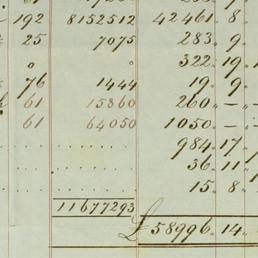 192 8152512 42461 „ 8 „
25 7075 283 „ 9 „
0 0 322 „ 19 „
76 1444 19 „ 9 „
61 15860 260 „ — „ —
61 64050 1050 „ — „ —
984 „ 17 „
36 „ 11 „
15 „ 8 „
11677293 £ 58996 „ 14 „